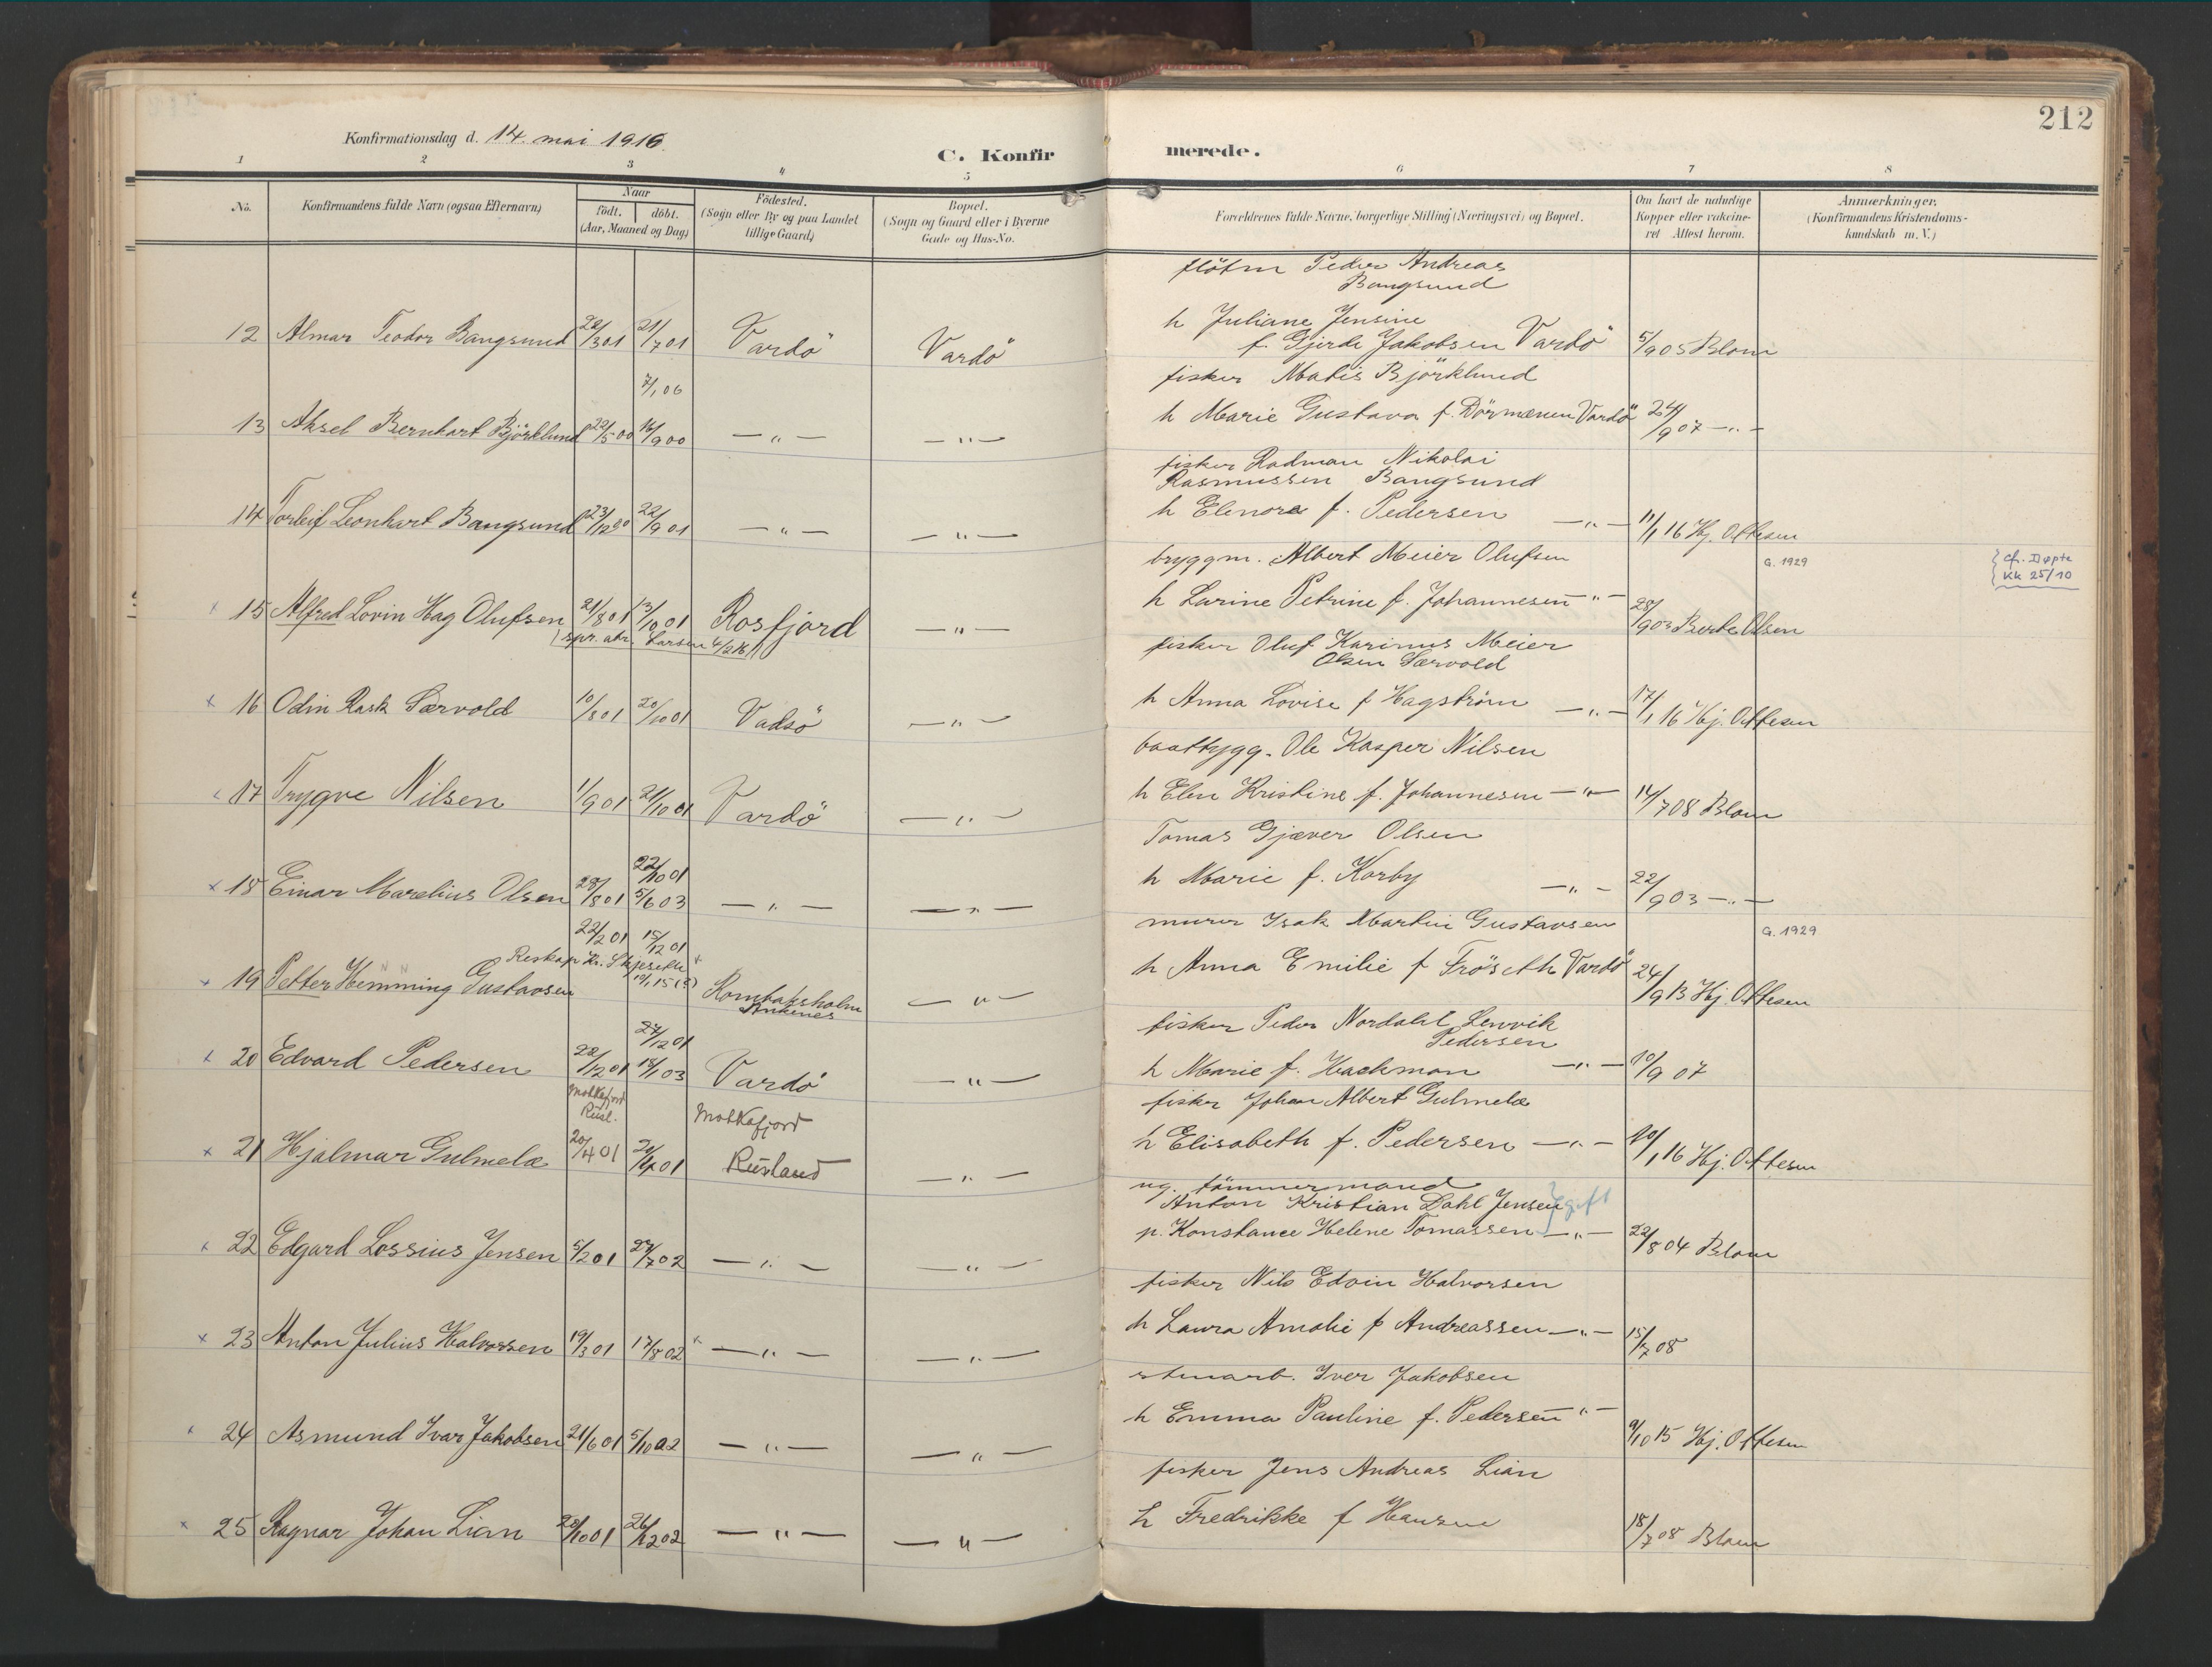 212
Konfirmationsdag d. 14. mai 1916.
C. Konfirmerede.
1 2 3 4 5 6 7 8
No.
Konfirmandens fulde Navn (ogsaa Efternavn)
Naar
født. døbt.
(Aar, Maaned og Dag)
Fødested.
(Sogn eller By og paa Landet
tillige Gaard)
Bopæl.
(Sogn og Gaard eller i Byerne
Gade og Hus-No.
Forældrenes fulde Navne, borgerlige Stilling (Næringsvei) og Bopæl.
Om havt de naturlige
Kopper eller vakcine-
ret Attest herom.
Anmærkninger.
(Konfirmandens Kristendoms-
kundskab m. V.)
Peder Andreas
Bangsund
h Juliane Jensine
12 Almar Teodor Bangsund 22/3 01 21/7 01 Vardö Vardö f. Gjerde Jakobsen Vardö 5/9 05 Blom
fisker Matis Björklund
7/1 06
13 Aksel Bernhart Björklund 22/5 00 16/9 00 — " — — " — h Marie Gustava f. Dörmænen Vardö 24/9 07 — " —
fisker Radman Nikolai
Rasmussen Bangsund
14 Torleif Leonhart Bangsund 23/12 00 22/9 01 — " — — " — h Elenora f. Pedersen — " — 11/1 16 Hj. Ottesen
bryggm. Albert Meier Olufsen G. 1929
cfr. Döpte
KK 25/10
x 15 Alfred Lovin Hag Olufsen 21/8 01 13/10 01 Rosfjord — " — h Larine Petrine f. Johannesen — " — 28/9 03 Berte Olsen
(spr. atr. Larsen 4/2 16)
fisker Oluf Karinus Meier
Olsen Særvold
x 16 Odin Rask Særvold 10/8 01 20/10 01 Vadsö — " — h Anna Lovise f Hagström — " — 17/1 16 Hj. Ottesen
baatbygg. Ole Kasper Nilsen
17 Trygve Nilsen 1/9 01 21/10 01 Vardö — " — h Elen Kristine f. Johannesen — " — 14/7 08 Blom
Tomas Gjæver Olsen
22/10 01
x 18 Einar Marelius Olsen 28/8 01 5/6 03 — " — — " — h Marie f. Korby — " — 22/9 03 — " —
murer Isak Martin Gustavsen G. 1929
22/2 01 15/12 01
x 19 Petter Hemming Gustavsen 10/1 15 (?) Rombaksholm — " — h Anna Emilie f Fröseth Vardö 24/9 13 Hj. Ottesen
Ankenes
fisker Peder Nordahl Lenvik
Pedersen
27/12 01
x 20 Edvard Pedersen 22/12 01 18/1 03 Vardö — " — h Marie f. Hackman — " — 10/9 07
Motkafjord
Rusl.
Motkafjord
fisker Johan Albert Gulmelæ
x 21 Hjalmar Gulmelæ 20/4 01 Rusland — " — h Elisabeth f. Pedersen — " — 10/1 16 Hj. Ottesen
ug. tömmermand
Anton Kristian Dahl Jensen gift
x 22 Edgard Lossius Jensen 5/2 01 27/7 02 — " — — " — p. Konstance Helene Tomassen — " — 22/8 04 Blom
fisker Nils Edvin Halvorsen
x 23 Anton Julius Halvorsen 19/3 01 17/8 02 x — " — — " — h Laura Amalie f Andreassen — " — 15/7 08
stenarb. Iver Jakobsen
x 24 Asmund Ivar Jakobsen 21/6 01 5/10 02 — " — — " — h Emma Pauline f. Pedersen — " — 9/10 15 Hj. Ottesen
fisker Jens Andreas Lian
x 25 Ragnar Johan Lian 20/10 01 26/12 02 — " — — " — h Fredrikke f Hansen 18/7 08 Blom